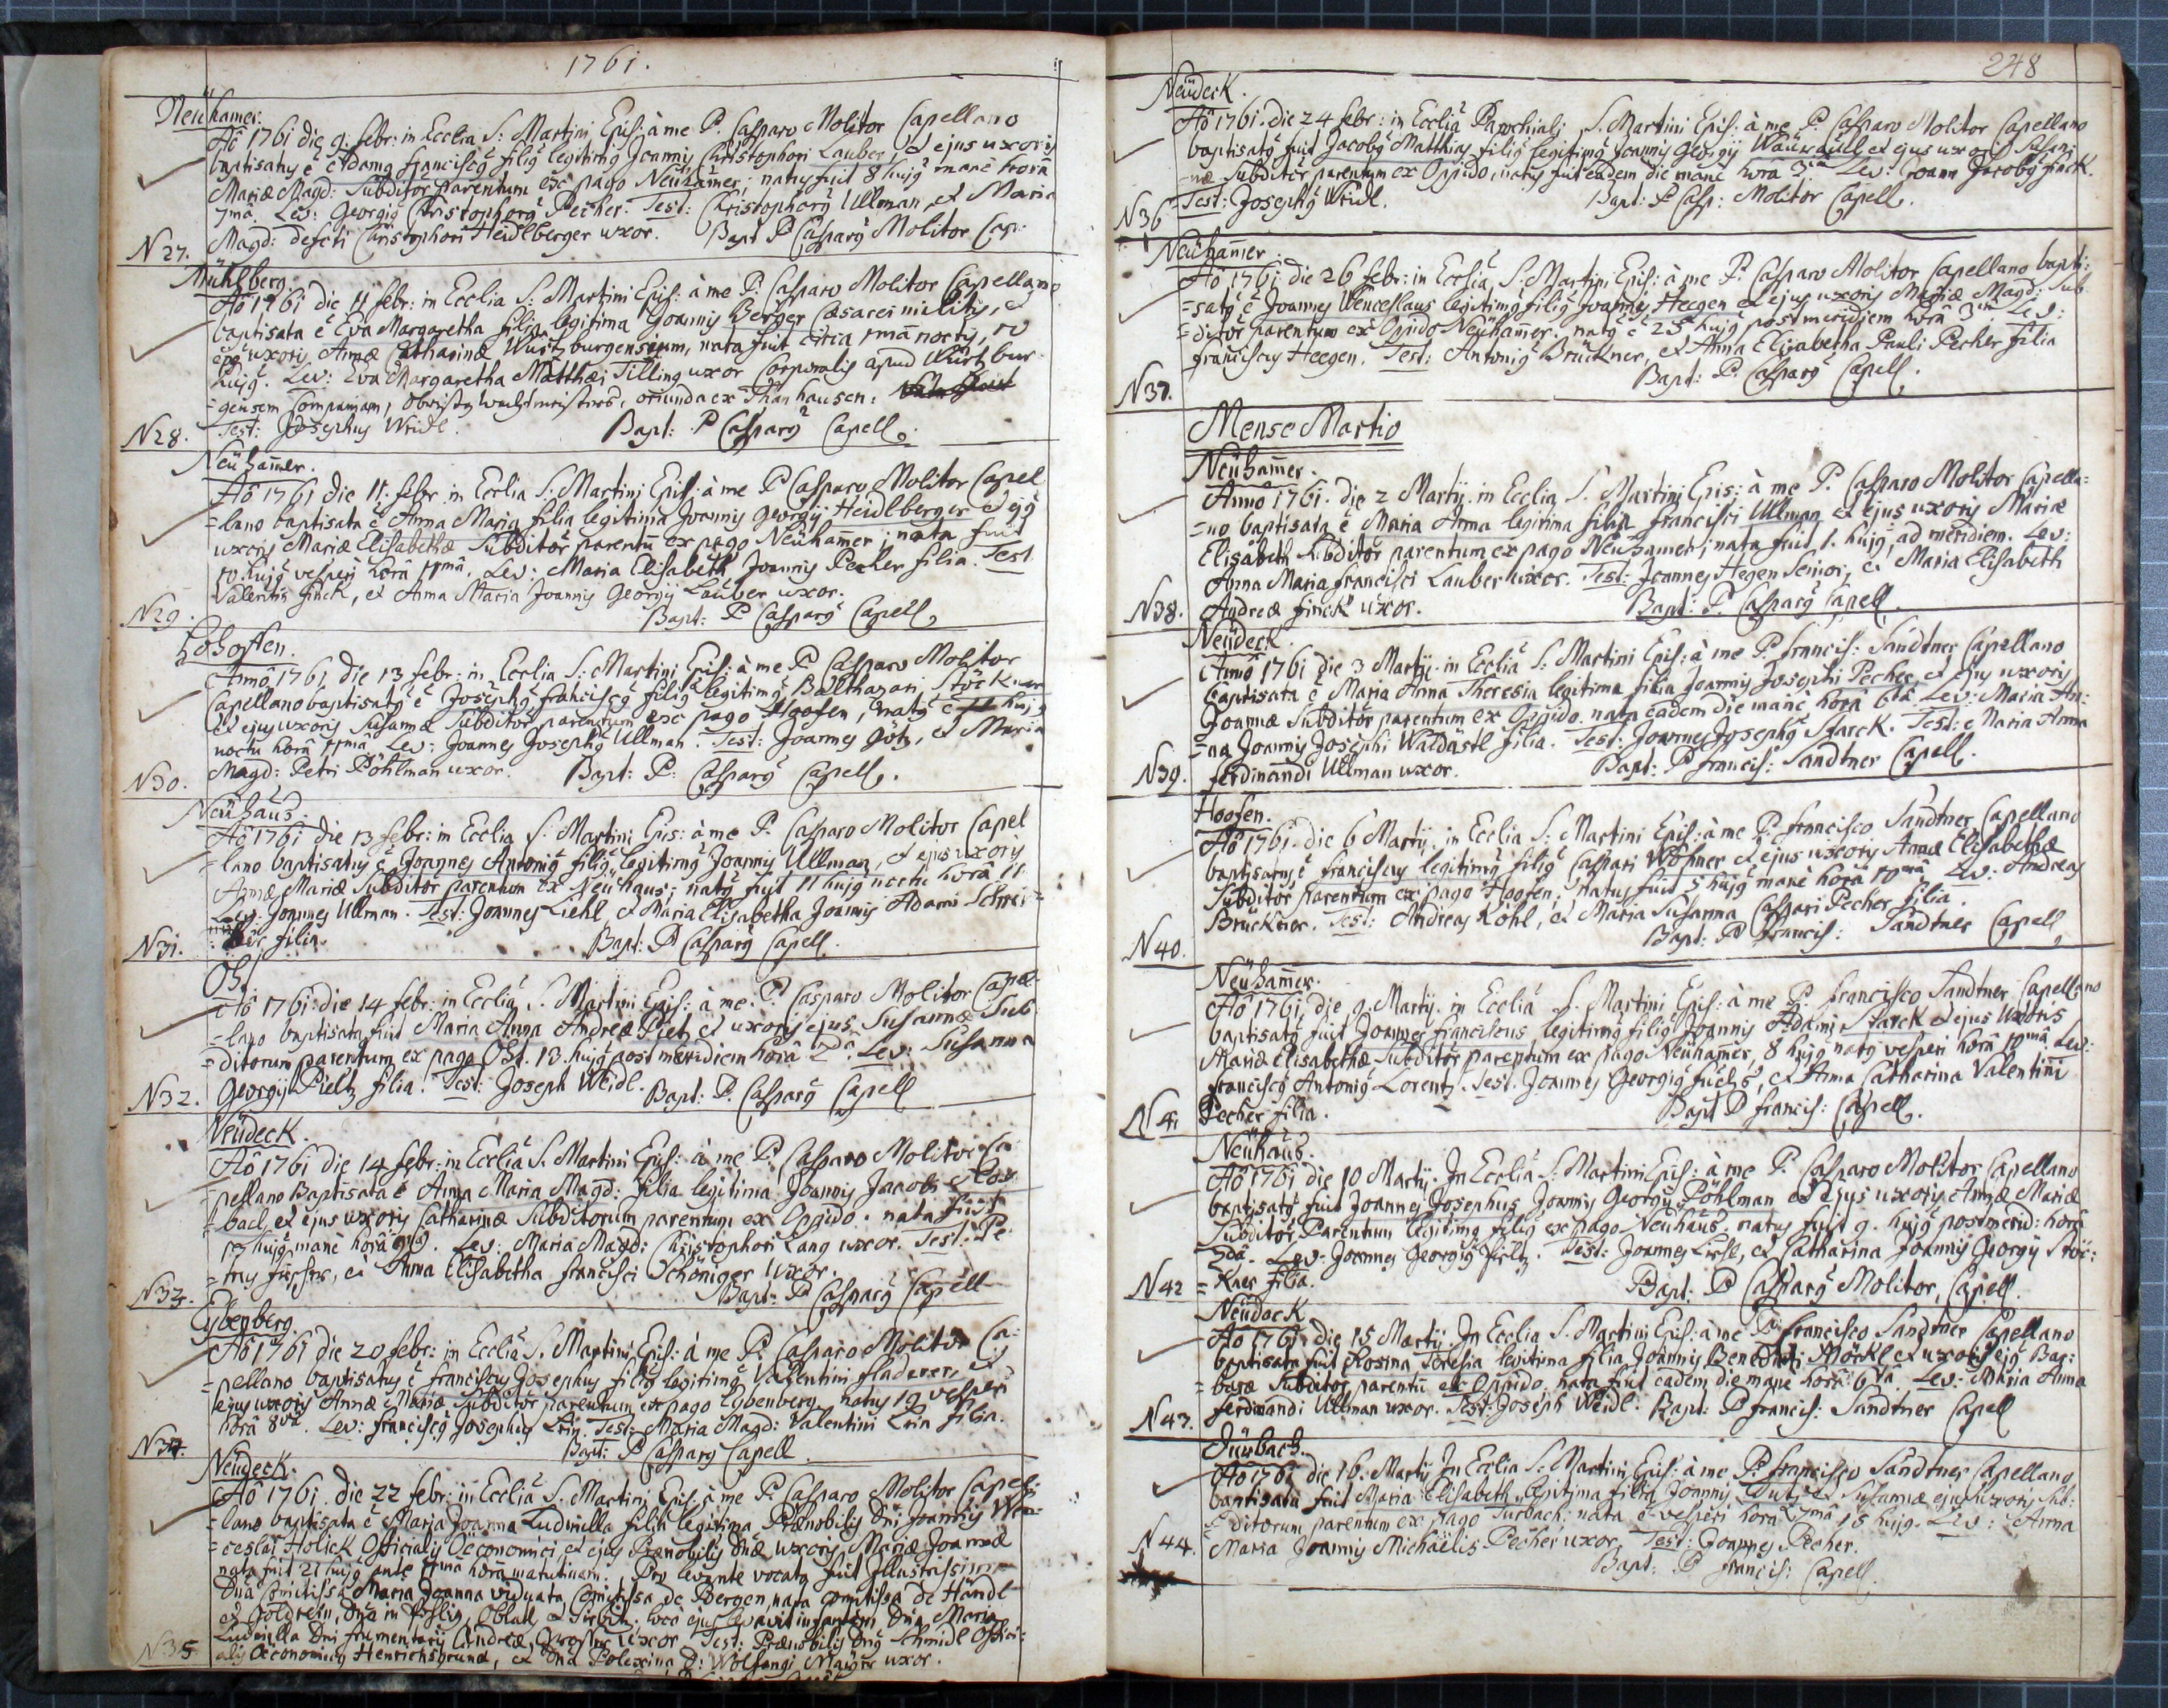 1761.
Neühamer.
Aõ 1761 die 9. febr: in Ecclia S: Martini Epis: à me P. Casparo Molitor Capellano
baptisatus ẽ Adamg franciscg filig legitimg Joannis Christophori Lauber, et ejus uxoris
Mariæ Magd: Subditor parentum ex pago Neühamer; natus fuit 8 hujg manè horâ
7mâ. Lev: Georgig Christophorg Pecher. Test: Christophorg Ullman, et Maria
N 27. Magd: defcti Christophori Heidlberger uxor. Bapt P Casparg Molitor Cap:
Mühlberg.
Aõ 1761 die 11 febr: in Ecclia S: Martini Epis: à me P. Casparo Molitor Capellano
baptisata ẽ Eva Margaretha filia legitima Joannis Berger Cæsarei militis, et
ejg uxoris Annæ Catharinæ Würtzburgensium, nata fuit circa 1mâ noctis, 10
hujg. Lev: Eva Margaretha Matthæi Tilling uxor Corporalis apud Würtzbur-
=gensem Compuniam, oriunda ex Thanhausen:
N 28. Test: Josephus Weidl. Bapt: P Casparg Capell.
Neühamer.
Aõ 1761 die 11. febr. in Ecclia S. Martini Epis: à me P Casparo Molitor Capel
=lano baptisata ẽ Anna Maria filia legitima Joannis Georgij Heidlberger et ejg
uxoris Mariæ Elisabethæ Subditor parentũ ex pago Neühamer; nata fuit
10 hujg vesperi horâ 11mâ. Lev: Maria Elisabeth Joannis Pecher filia. Test
Valentin finck, et Anna Maria Joannis Georgij Lauber uxor.
N 29. Bapt: P Casparg Capell.
Hohofen.
Annô 1761 die 13 febr: in Ecclia S: Martini Epis: à me P Casparo Molitor
Capellano baptisatg ẽ Josephg franciscg filig legitimg Balthasari Stöckner
et ejus uxoris Susannæ Subditor parentum ex pago Hoofen, natg ẽ hujg
noctu horâ 11mâ Lev: Joannes Josephg Ullman. Test: Joannes Götz, et Maria
N 30. Magd: Petri Pöhlman uxor. Bapt: P: Casparg Capell.
Neühaus.
Aõ 1761 die 13 febr: in Ecclia S. Martini Epis: à me P. Casparo Molitor Capel
=lano baptisatus ẽ Joannes Antonig filig legitimg Joannis Ullman, et ejus uxoris
Annæ Mariæ Subditor parentum ex Neühaus; natg fuit 11 hujg noctu horâ 11
Lev: Joannes Ullman. Test: Joannes Liehl, et Maria Elisabetha Joannis Adami Schrei-
N 31. filia. Bapt: P Casparg Capell.
Ohl.
Aõ 1761. die 14 febr: in Ecclia S. Martini Epis: à me P. Casparo Molitor Capel
=lano baptisata fuit Maria Anna Andreæ Pietz et uxoris ejus Susannæ Sub
=ditorum parentum ex pago Ohl. 13 hujg post meridiem horâ 2dâ. Lev: Susanna
N 32. Georgij Pieltz filia. Test: Joseph Weidl. Bapt: P. Casparg Capell
Neüdeck.
Aõ 1761 die 14 febr: in Ecclia S. Martini Epis: à me P. Casparo Molitor Ca
=pellano Baptisata ẽ Anna Maria Magd: filia legitima Joannis Jacobi
=bael, et ejus uxoris Catharinæ Subditorum parentum ex Oppido. nata fuit
hujg manè horâ. Lev: Maria Magd: Christophori Lang uxor. Test: Pe
=trus, et Anna Elisabetha francisci Schöniger uxor.
N 33. Bapt: P Casparg Capell
Eybenberg.
Aõ 1761 die 20 febr: in Ecclia S. Martini Epis: à me P. Casparo Molitor Ca:
=pellano baptisatus ẽ franciscus Josephus filig legitimg Valentini fladerer, et
ejus uxoris Annæ Mariæ Subditor parentum ex pago Eybenberg. natus 19 vesperi
horâ 8vâ. Lev: franciscg Josephus Lrin. Test: Maria Magd: Valentini Lrin filia.
N 34. Bapt: P Casparg Capell.
Neüdeck.
Aõ 1761. die 22 febr: in Ecclia S. Martini Epis: à me P. Casparo Molitor Capel:
=lano baptisata ẽ Maria Joanna Ludmilla filia legitima Prænobilis Dni Joannis Wen-
=ceslai Holick Officialis Oeconomici, et ejus Prænobilis Dnæ uxoris Mariæ Joannæ
nata fuit 21 hujg ante horâ matutinam. Pro levante vocata fuit Illustrissima
Dna Comitissa Maria Joanna viduata Comitissa de Pœrgen, nata comitissa de Händl
et Goldrein, Dna in loco ejus levavit infantem Dna Maria
Ludmilla Dni frumentarij Andreæ uxor. Test: Prænobilis Dng Schmidl Offici:
N 35 alis Oeconomicus Henrichsgrünæ, et Dna Polexina D: Wolfgangi Mayer uxor.
248
Neüdeck.
Aõ 1761. die 24 febr: in Ecclia Parochiali S. Martini Epis: à me P. Casparo Molitor Capellano
baptisatg fuit Jacobg Matthias filig legitimg Joannis Georgij et ejus uxoris Susan
=næ Subditor parentum ex Oppido, natus fuit eadem die manè horâ 3tiâ Lev: Joann Jacobg finck.
N 36 Test: Josephg Weidl. Bapt: P Casp: Molitor Capell.
Neühamer.
Aõ 1761 die 26 febr: in Ecclia S. Martini Epis: à me P. Casparo Molitor Capellano bapti:
=satg ẽ Joannes Wenceslaus legitimg filig Joannis Heegen et ejus uxoris Mariæ Magd: Sub
=ditor parentum ex Oppido Neühamer; natg ẽ 25 hujg post meridiem horâ 3tiâ Lev:
franciscus Heegen. Test: Antonig Brückner, et Anna Elisabetha Pauli Pecher filia
N 37. Bapt: P. Casparg Capell.
Mense Martio
Neühamer.
Annô 1761. die 2 Martij. in Ecclia S. Martini Epis: à me P. Casparo Molitor Capella=
=no baptisata ẽ Maria Anna legitima filia francisci Ullman et ejus uxoris Mariæ
Elisabeth Subditor parentum ex pago Neühamer; nata fuit 1. hujg ad meridiem. Lev:
Anna Maria francisci Lauber uxor. Test: Joannes Hegen Senior, et Maria Elisabeth
N 38. Andreæ finck uxor. Bapt: P. Casparg Capell.
Neüdeck.
Annô 1761 die 3 Martij. in Ecclia S: Martini Epis: à me P. francis: Sandtner Capellano
baptisata ẽ Maria Anna Theresia legitima filia Joannis Josephi Pecher, et ejus uxoris
Joannæ Subditor parentum ex Oppido. nata eadem die manè horâ 6tâ Lev: Maria An:
=na Joannis Josephi Waldästl filia. Test: Joannes Josephg Starck. Test: Maria Anna
N 39. ferdinandi Ullman uxor. Bapt: P francis: Sandtner Capell.
Hoofen.
Aõ 1761. die 6 Martij. in Ecclia S: Martini Epis: à me P. francisco Sandtner Capellano
baptisatus ẽ franciscus legitimg filig Caspari Wöhner et ejus uxoris Annæ Elisabethæ
Subditor parentum ex pago Hoofen, natus fuit 5 hujg manè horâ 10mâ. Lev: Andreas
Brückner. Test: Andreas Köhl, et Maria Susanna Caspari Pecher filia.
N 40. Bapt: P francis: Sandtner Capell
Neühamer.
Aõ 1761, die 9. Martij. in Ecclia S. Martini Epis: à me P. francisco Sandtner Capellano
baptisatg fuit Joannes franciscus legitimg filig Joannis Adami Starck et ejus Uxoris
Mariæ Elisabethæ Subditor parentum ex pago Neühamer, 8 hujg natg vesperi horâ 10mâ Lev:
franciscg Antonig Lorentz. Test. Joannes Georgig fuchs, et Anna Catharina Valentini
N 41 Pecher filia. Bapt P francis: Capell.
Neühaus.
Aõ 1761 die 10 Martij. In Ecclia S: Martini Epis: à me P. Casparo Molitor Capellano
baptisatg fuit Joannes Josephus Joannis Georgij Pöhlman et ejus uxoris Annæ Mariæ
Subditor Parentum legitimg filig ex pago Neühaus. natus fuit 9. hujg postmerid: horâ
2dâ. Lev: Joannes Georgig. Test: Joannes Liehl, et Catharina Joannis Georgij Stöc:
N 42 =kner filia. Bapt: P Casparg Molitor, Capell.
Neüdeck
Aõ 1761. die 15 Martij In Ecclia S. Martini Epis: à me P. francisco Sandtner Capellano
baptisata fuit Rosina Teresia legitima filia Joannis Benedicti Möckl et uxoris ejg Bar:
=baræ Subditor parentũ ex Oppido, nata fuit eadem die manè horâ 6tâ. Lev: Maria Anna
N 43. ferdinandi Ullman uxor. Test: Joseph Weidl. Bapt: P francis: Sandtner Capell
Surbach.
Aõ 1761 die 16. Martij In Ecclia S: Martini Epis: à me P. francisco Sandtner Capellano
baptisata fuit Maria Elisabeth legitima filia Joannis Lutz et Susannæ ejus uxoris Sub:
=ditorum parentum ex pago Surbach. nata ẽ vesperi horâ 7mâ 15 hujg. Lev: Anna
N 44. Maria Joannis Michaelis Pecher uxor. Test: Joannes Pecher.
Bapt: P francis: Capell.